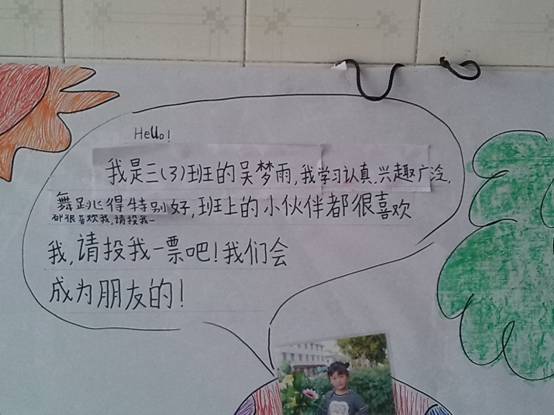 Hello!
我是三(3)班的吴梦雨,我学习认真,兴趣广泛,
舞跳得特别好,班上的小伙伴都很喜欢
都很喜欢我,请投我一
我,请投我一票吧!我们会
成为朋友的!